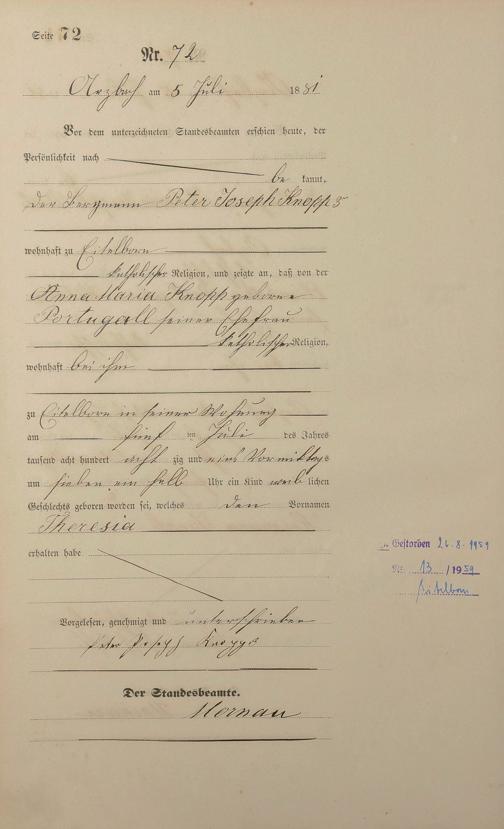 Seite 72
Nr. 72
Arzbach am 5 Juli 1881
Vor dem unterzeichneten Standesbeamten erschien heute, der
Persönlichkeit nach
be kannt,
der Bergmann Peter Joseph Knopp
wohnhaft zu Eitelborn
katholischer Religion, und zeigte an, daß von der
Anna Maria Knopp geborene
Portugall seiner Ehefrau
katholischer Religion,
wohnhaft bei ihm
zu Eitelborn in seiner Wohnung
am fünf ten Juli des Jahres
tausend acht hundert acht zig und eins Vormittags
um sieben ein halb Uhr ein Kind weib lichen
Geschlechts geboren worden sei, welches den Vornamen
Theresia
erhalten habe
Vorgelesen, genehmigt und unterschrieben
Peter Joseph Knopp
Der Standesbeamte.
Mornau
Gestorben 26.8.1959
Nr. 13 / 1959
Eitelborn